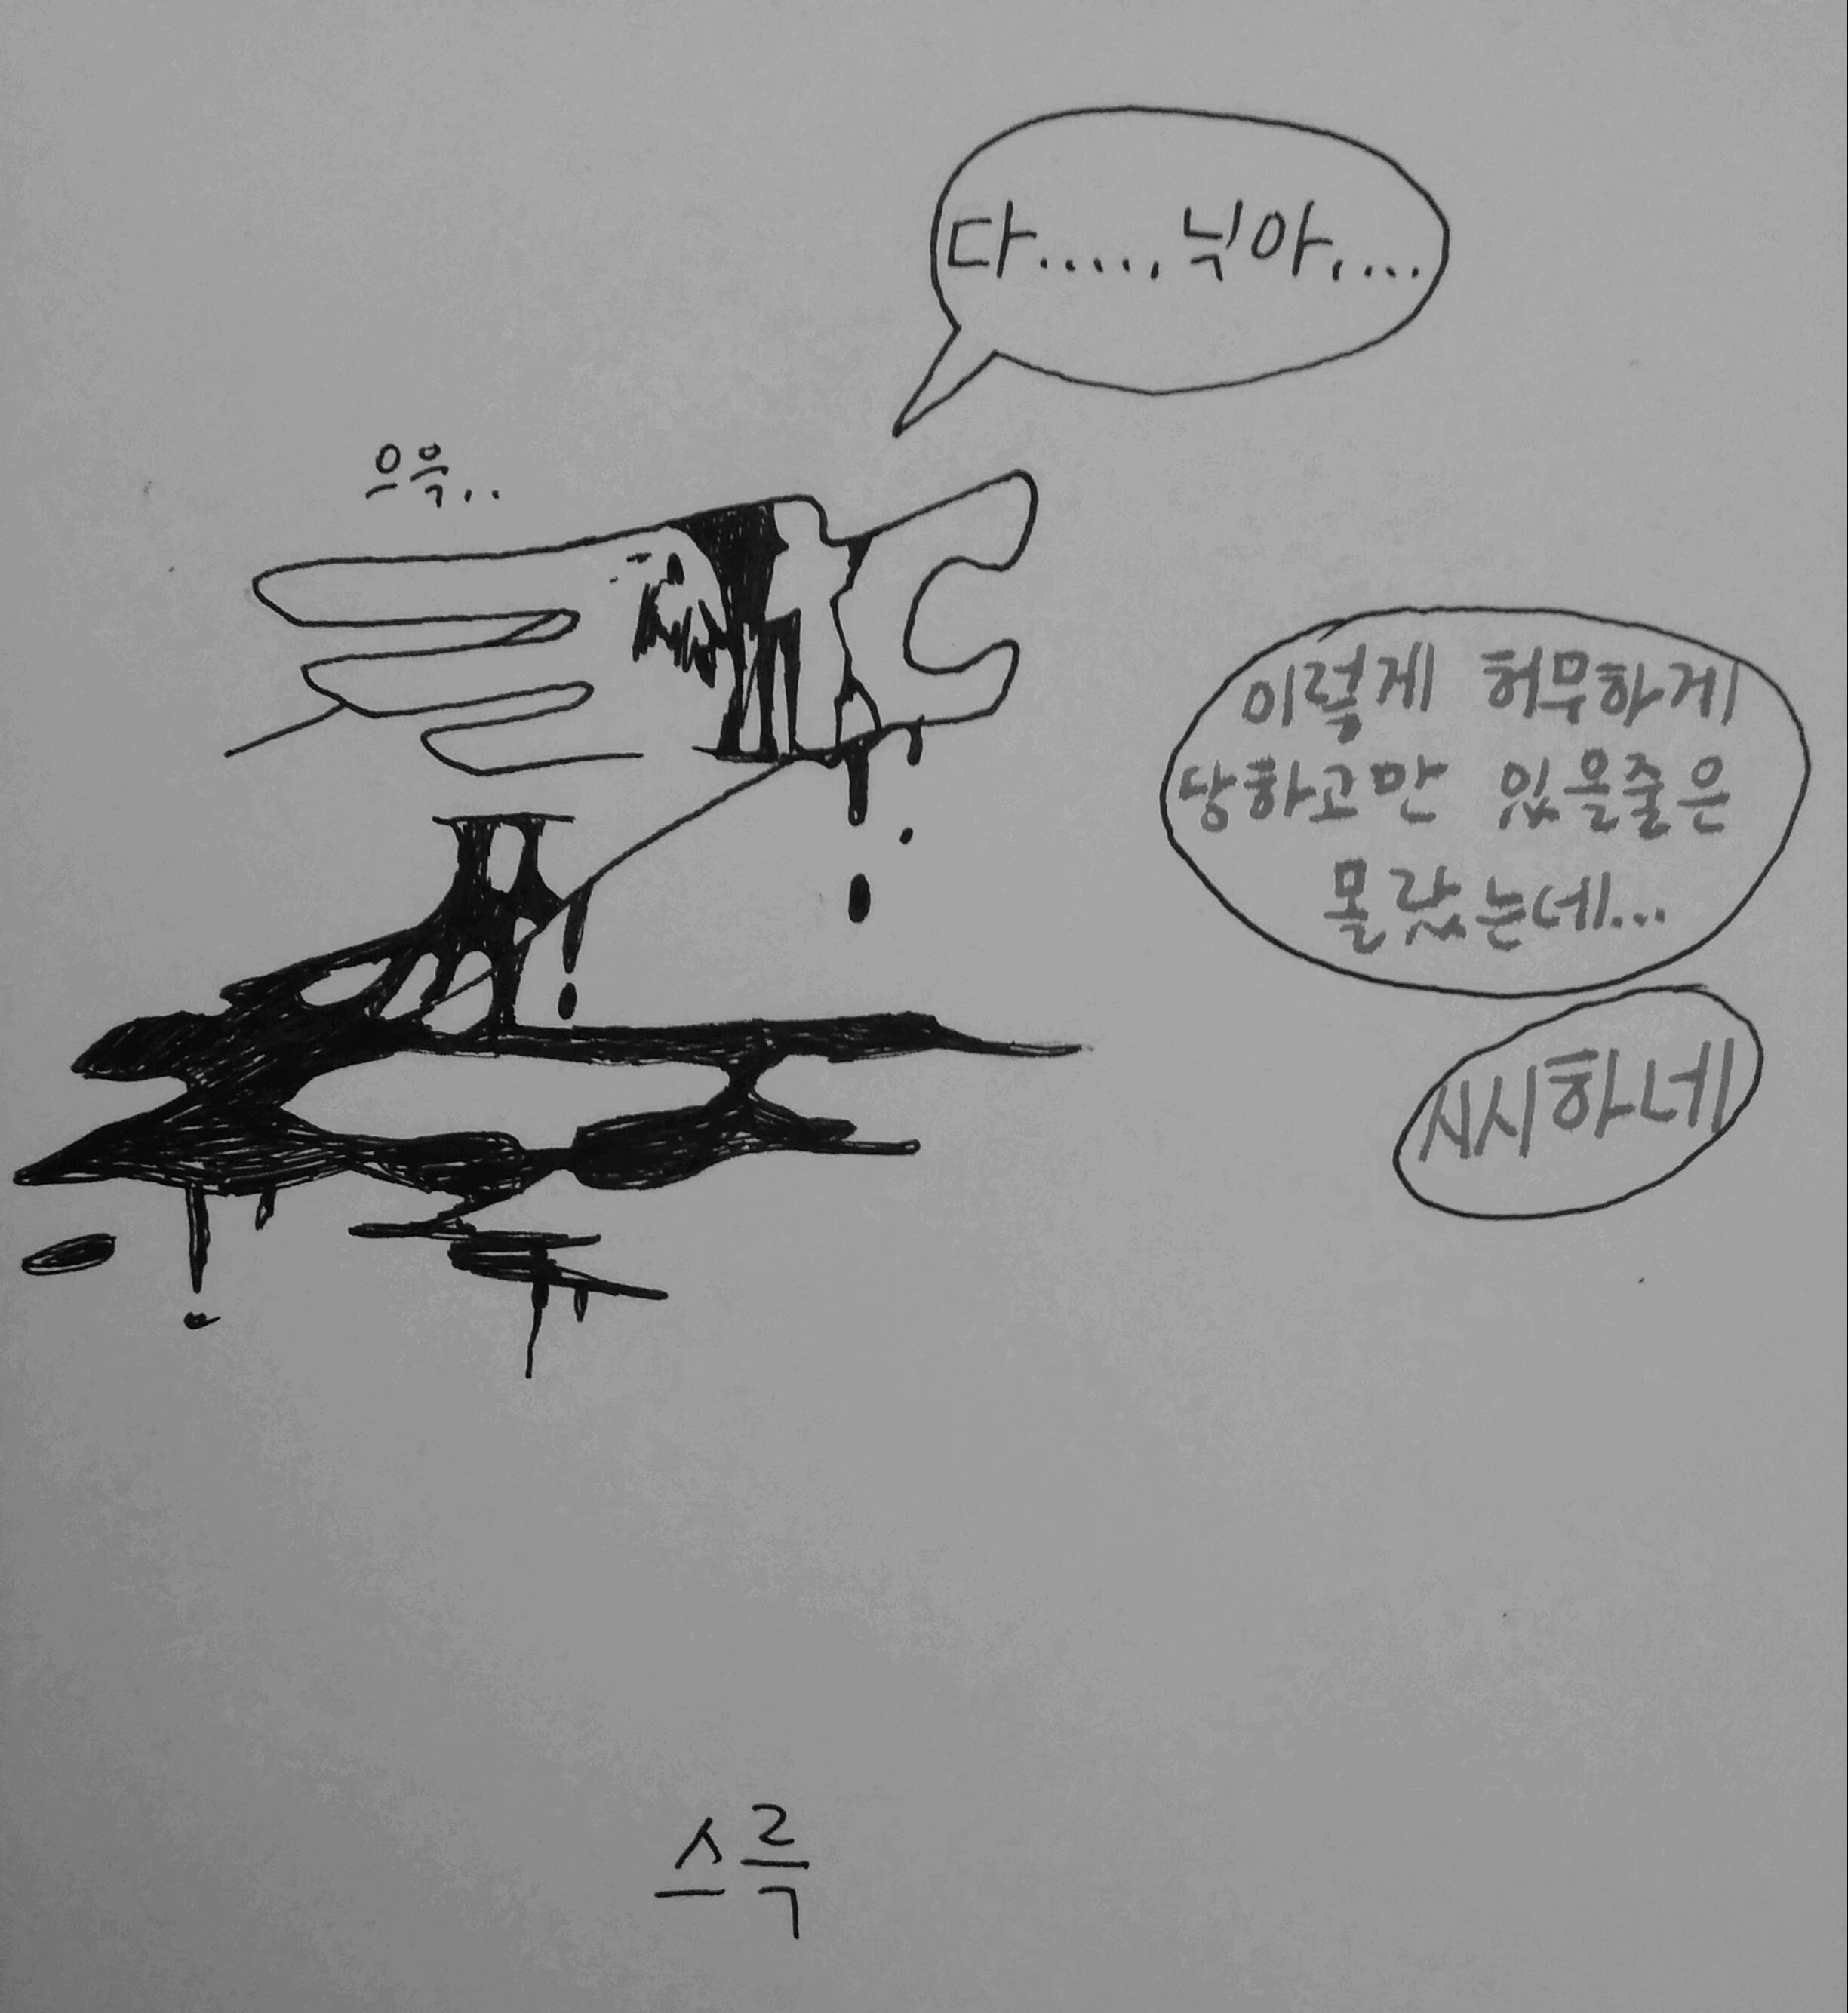 다......늭아.....
으윽..
이렇게 허무하게
당하고만 있을줄은
몰랐는데...
시시하네
스륵